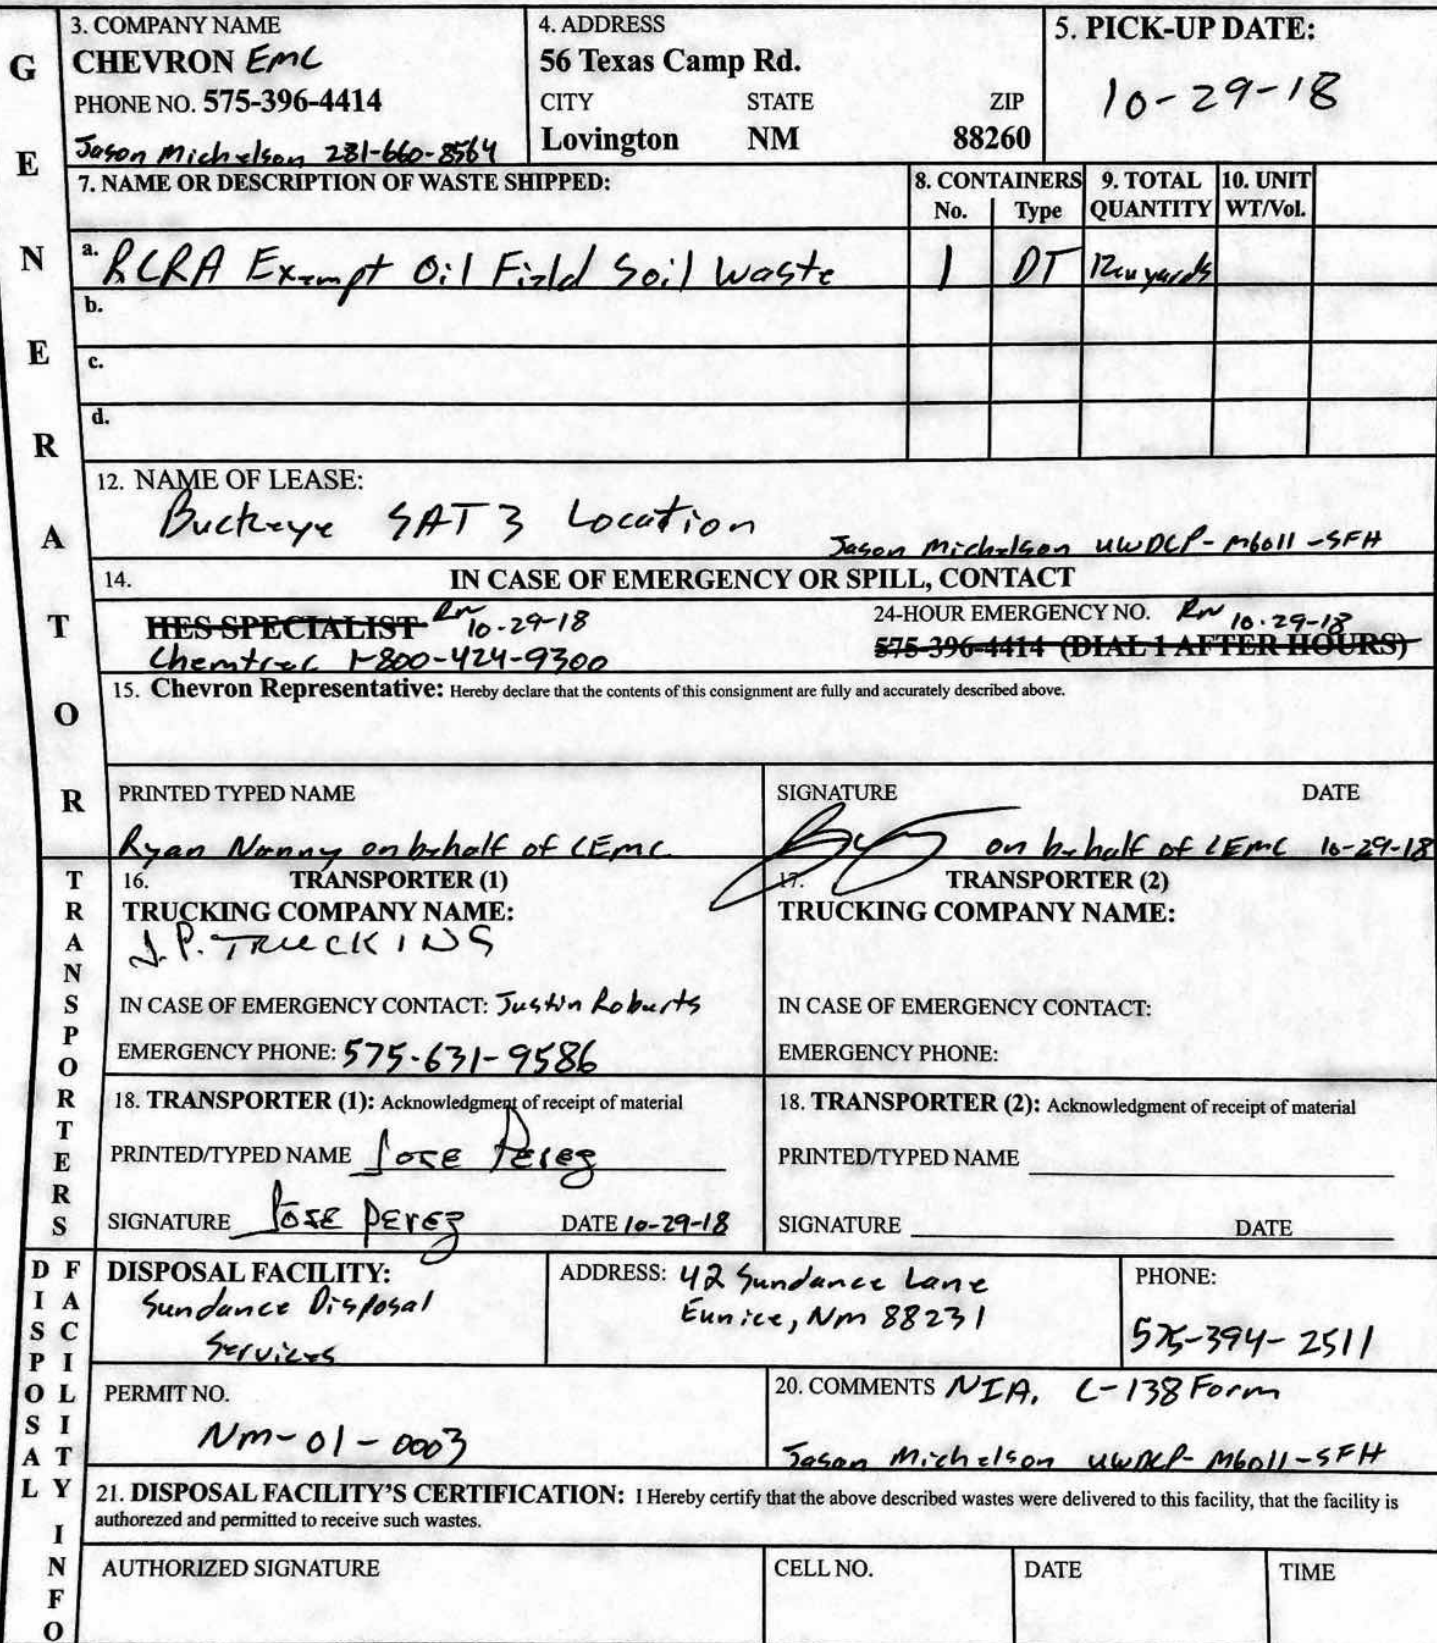 GENERATOR
3. COMPANY NAME
CHEVRON EMC
PHONE NO. 575-396-4414
Jason Michelson 281-660-8564
4. ADDRESS
56 Texas Camp Rd.
CITY STATE ZIP
Lovington NM 88260
5. PICK-UP DATE:
10-29-18
7. NAME OR DESCRIPTION OF WASTE SHIPPED:
8. CONTAINERS
No. Type
9. TOTAL QUANTITY
10. UNIT WT/Vol.
a. RCRA Exempt Oil Field Soil Waste 1 DT 12cu yards
b.
c.
d.
12. NAME OF LEASE:
Buckeye SAT 3 Location
Jason Michelson UWDCP-M6011-SFH
14. IN CASE OF EMERGENCY OR SPILL, CONTACT
HES SPECIALIST RN 10-29-18
Chemtrec 1-800-424-9300
24-HOUR EMERGENCY NO. RN 10-29-18
575-396-4414 (DIAL 1 AFTER HOURS)
15. Chevron Representative: Hereby declare that the contents of this consignment are fully and accurately described above.
PRINTED TYPED NAME
Ryan Nanny on behalf of CEMC
SIGNATURE DATE
on behalf of CEMC 10-29-18
TRANSPORTERS
16. TRANSPORTER (1)
TRUCKING COMPANY NAME:
J.P. TRUCKING
IN CASE OF EMERGENCY CONTACT: Justin Roberts
EMERGENCY PHONE: 575-631-9586
17. TRANSPORTER (2)
TRUCKING COMPANY NAME:
IN CASE OF EMERGENCY CONTACT:
EMERGENCY PHONE:
18. TRANSPORTER (1): Acknowledgment of receipt of material
PRINTED/TYPED NAME Jose Perez
SIGNATURE Jose Perez DATE 10-29-18
18. TRANSPORTER (2): Acknowledgment of receipt of material
PRINTED/TYPED NAME
SIGNATURE DATE
DISPOSAL FACILITY INFO
DISPOSAL FACILITY:
Sundance Disposal
Services
ADDRESS: 42 Sundance Lane
Eunice, NM 88231
PHONE:
575-394-2511
PERMIT NO.
NM-01-0003
20. COMMENTS NIA, C-138 Form
Jason Michelson UWDCP-M6011-SFH
21. DISPOSAL FACILITY'S CERTIFICATION: I Hereby certify that the above described wastes were delivered to this facility, that the facility is
authorezed and permitted to receive such wastes.
AUTHORIZED SIGNATURE
CELL NO.
DATE
TIME